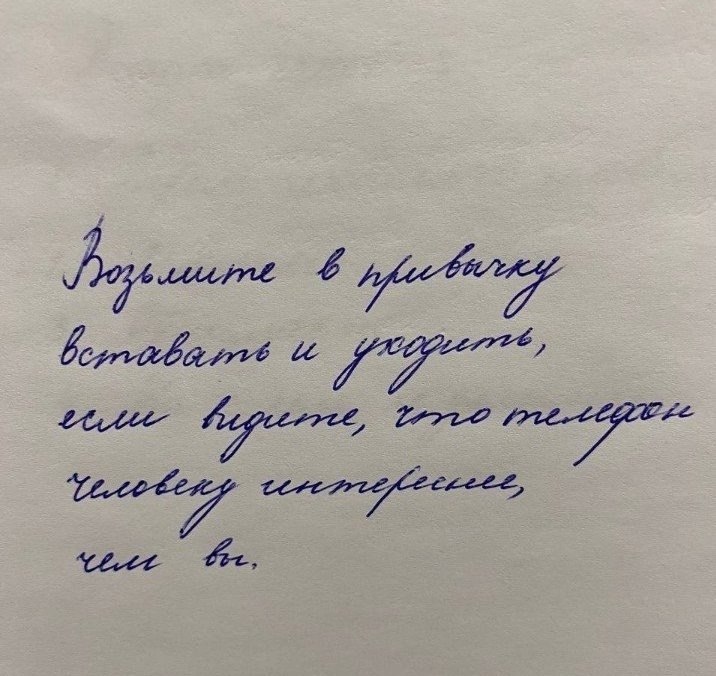 Возьмите в привычку
вставать и уходить,
если видите, что телефон
человеку интереснее,
чем вы.